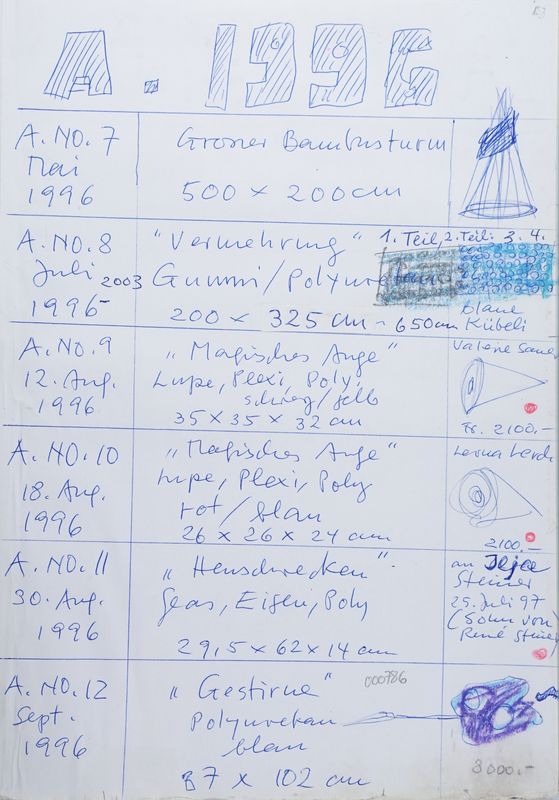 A. 1996
A. NO. 7 Groser Bambusturm
Mai
1996 500 x 200 cm
A. NO. 8 "Vermehrung" 1. Teil, 2. Teil: 3. 4.
Juli 2003 Gummi/Polyuretan
1996- blaue
200 x 325 cm - 650cm Kübeli
A. NO. 9 "Magisches Auge" Valerie
12. Aug. Lupe, Plexi, Poly,
1996 schwarz/gelb
35 x 35 x 32 cm Fr. 2100.-
A. NO. 10 "Magisches Auge"
18. Aug. Lupe, Plexi, Poly
1996 rot/blau
26 x 26 x 24 cm 2100.-
A. NO. 11 "Heuschrecken" an
30. Aug. Glas, Eisen, Poly Steiner
1996 25. Juli 97
(Sohn von
29,5 x 62 x 14 cm René Steiner
A. NO. 12 "Gestirne" 000786
Sept. Polyuretan
1996 blau
87 x 102 cm 3000.-